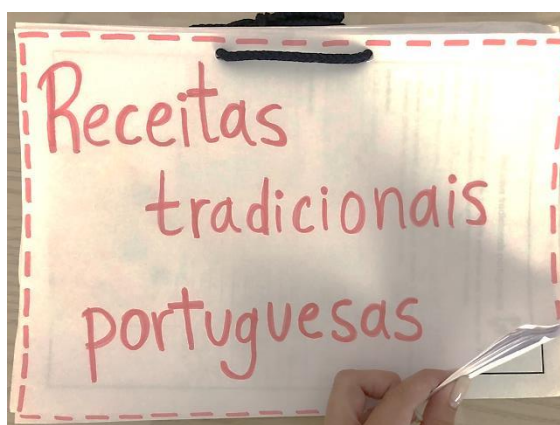 Receitas
tradicionais
portuguesas